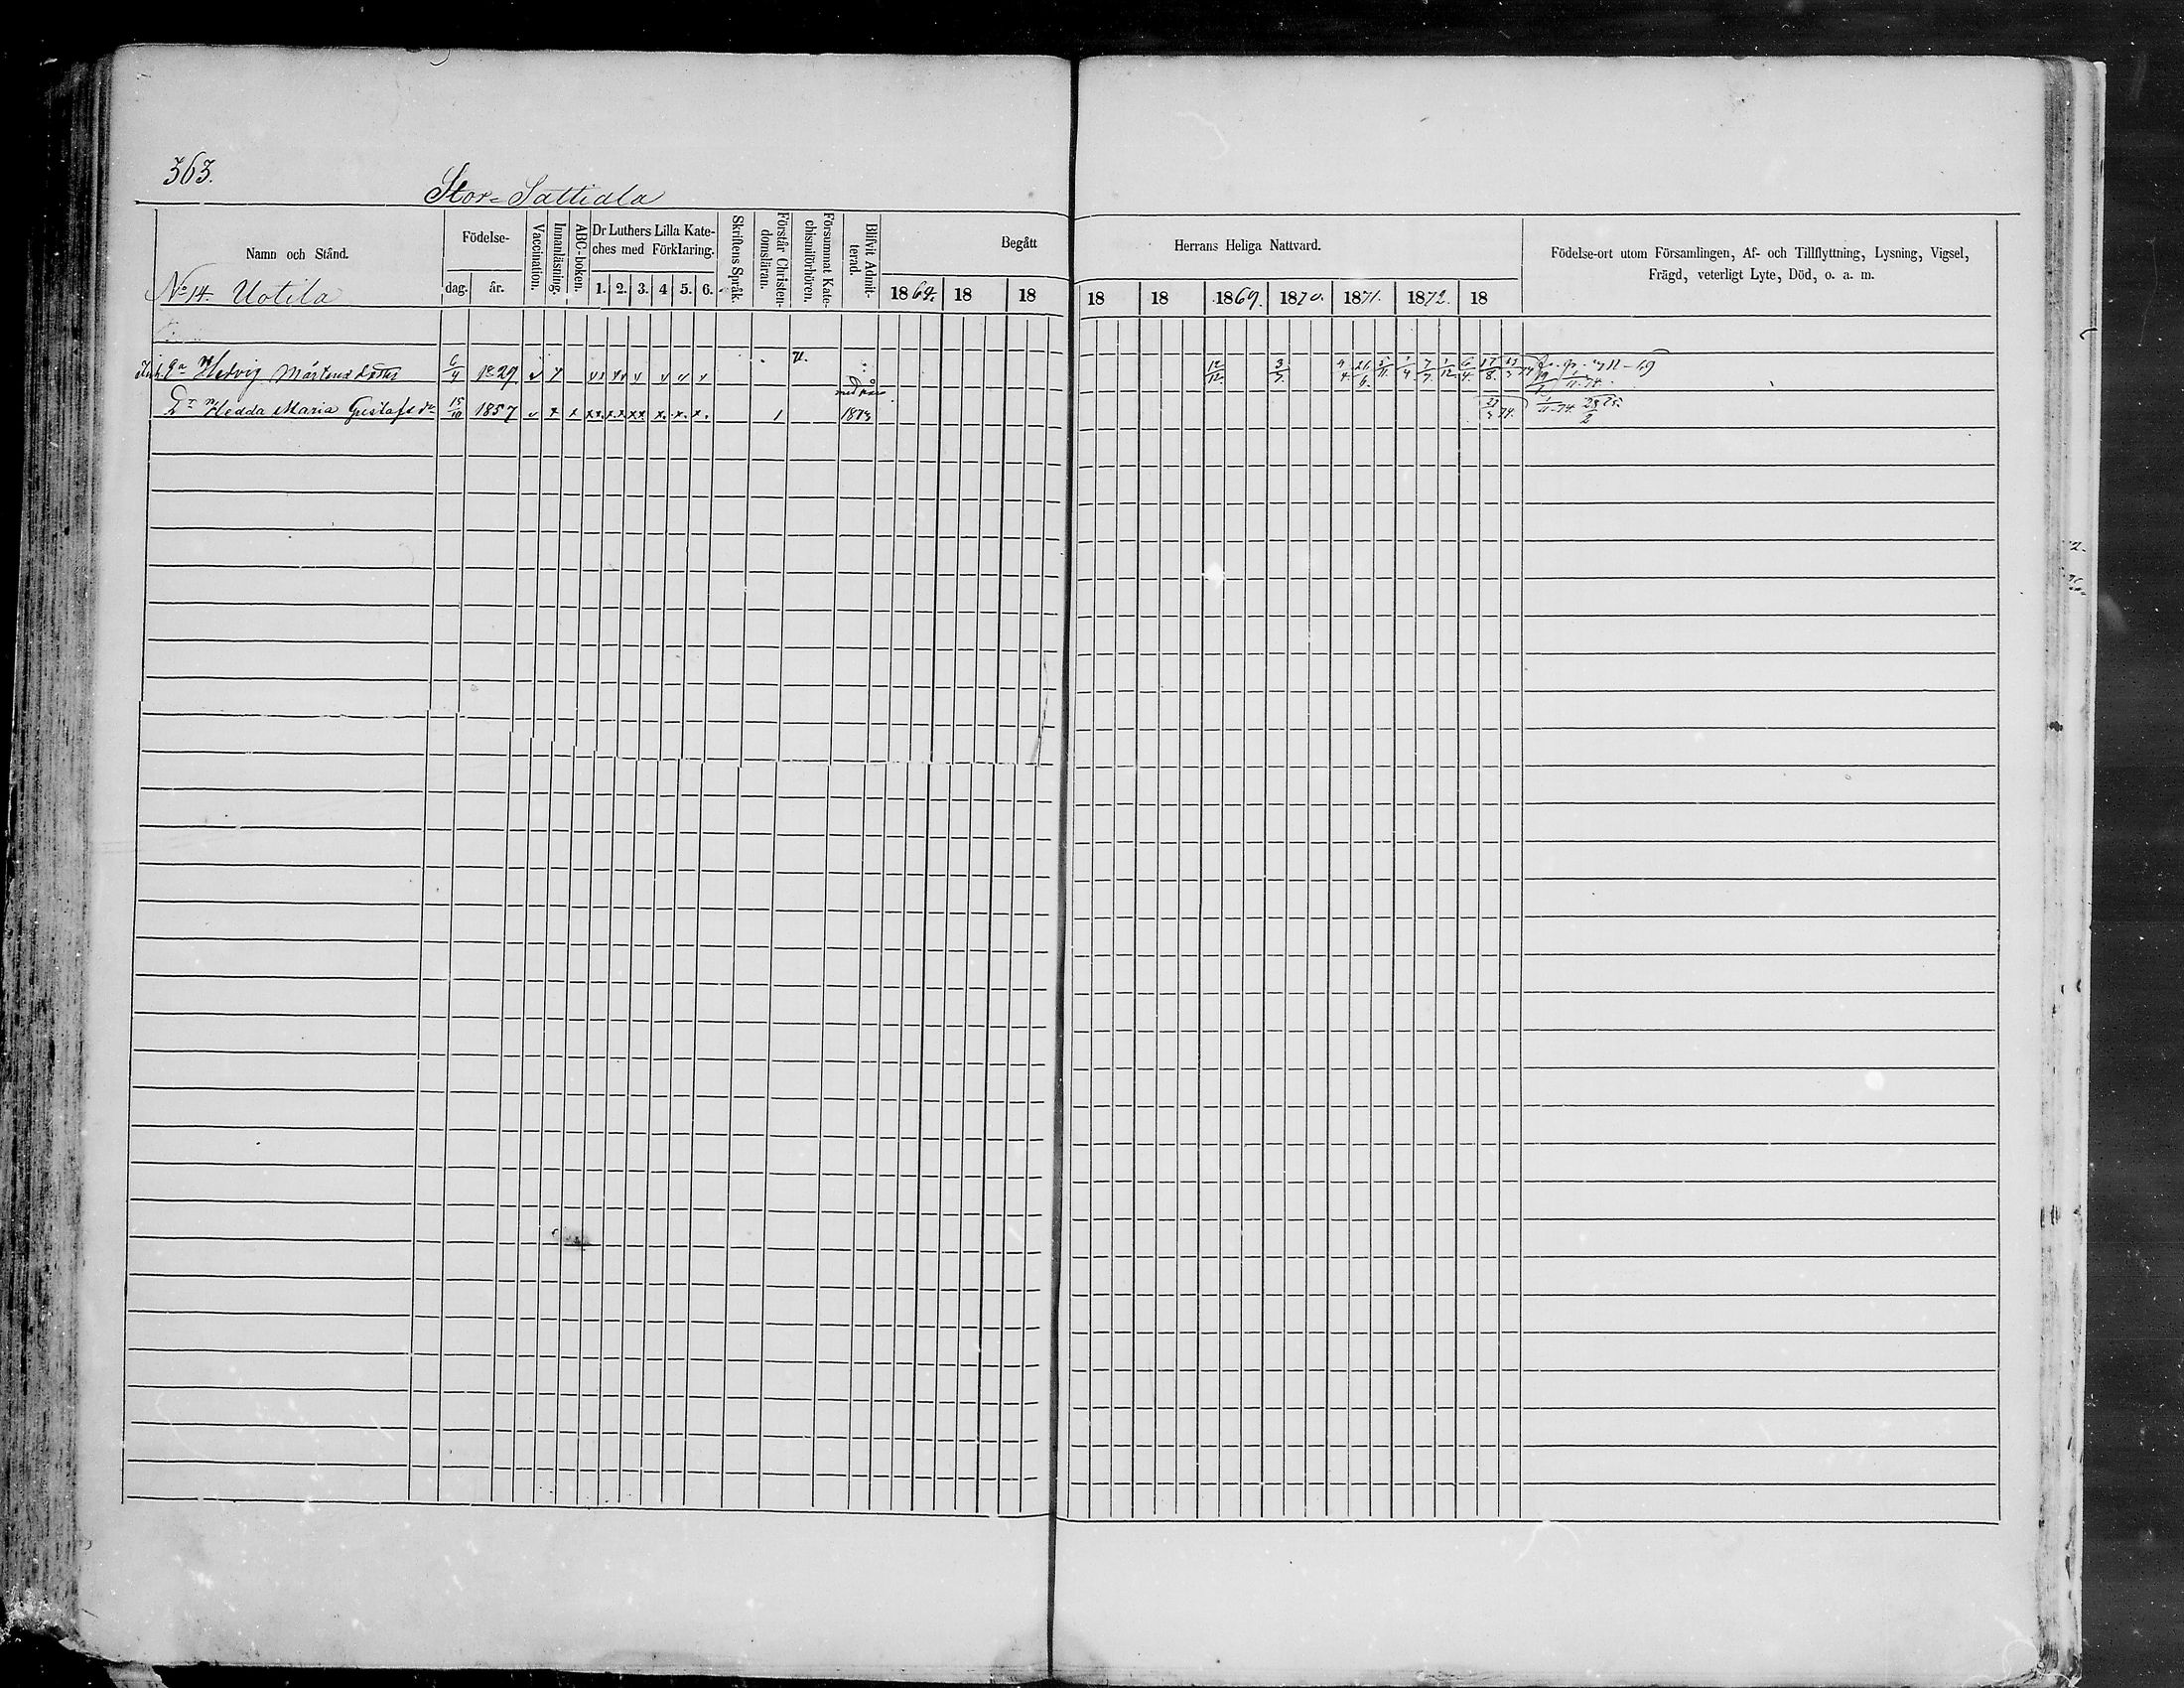 363.
Stor-Sattiala
Namn och Stånd.
Födelse-
dag. år.
Vaccination.
Innanläsning.
ABC-boken.
Dr Luthers Lilla Kate-
ches med Förklaring.
1. 2. 3. 4 5. 6.
Skriftens Språk.
Förstår Christen-
domsläran.
Försummat Kate-
chismiförhören.
Blifvit Admit-
terad.
Begått
1864. 18 18
Herrans Heliga Nattvard.
18 18 1869. 1870. 1871. 1872. 18
Födelse-ort utom Församlingen, Af- och Tillflyttning, Lysning, Vigsel,
Frägd, veterligt Lyte, Död, o. a. m.
No 14. Uotila
Hedvig Mårtensdotter 6/4 1829 12/12 3/7 9/4 21/6 5/11 1/4 7/7 1/12 6/4 17/8
Dr Hedda Maria Gustafsdr 15/10 1857 v x x xx. x.x xx x. x. x. 1 1873 23/3 74. 1/11-74. 23/2 75.